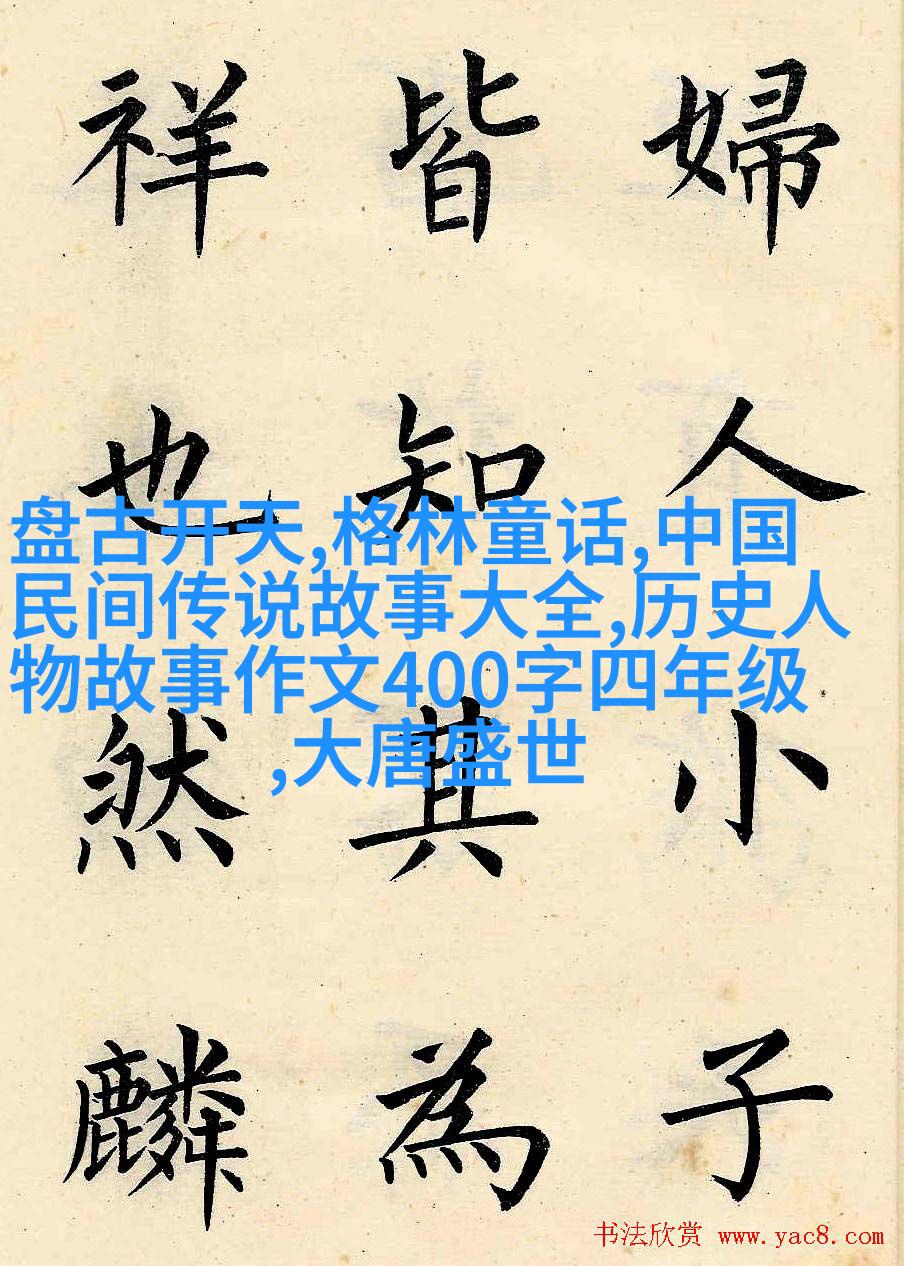 婦人小子
皆知其為
祥也然麟
盘古开天,格林童话,中国
民间传说故事大全,历史人
物故事作文400字四年级
,大唐盛世
书法欣赏 www.yac8.com